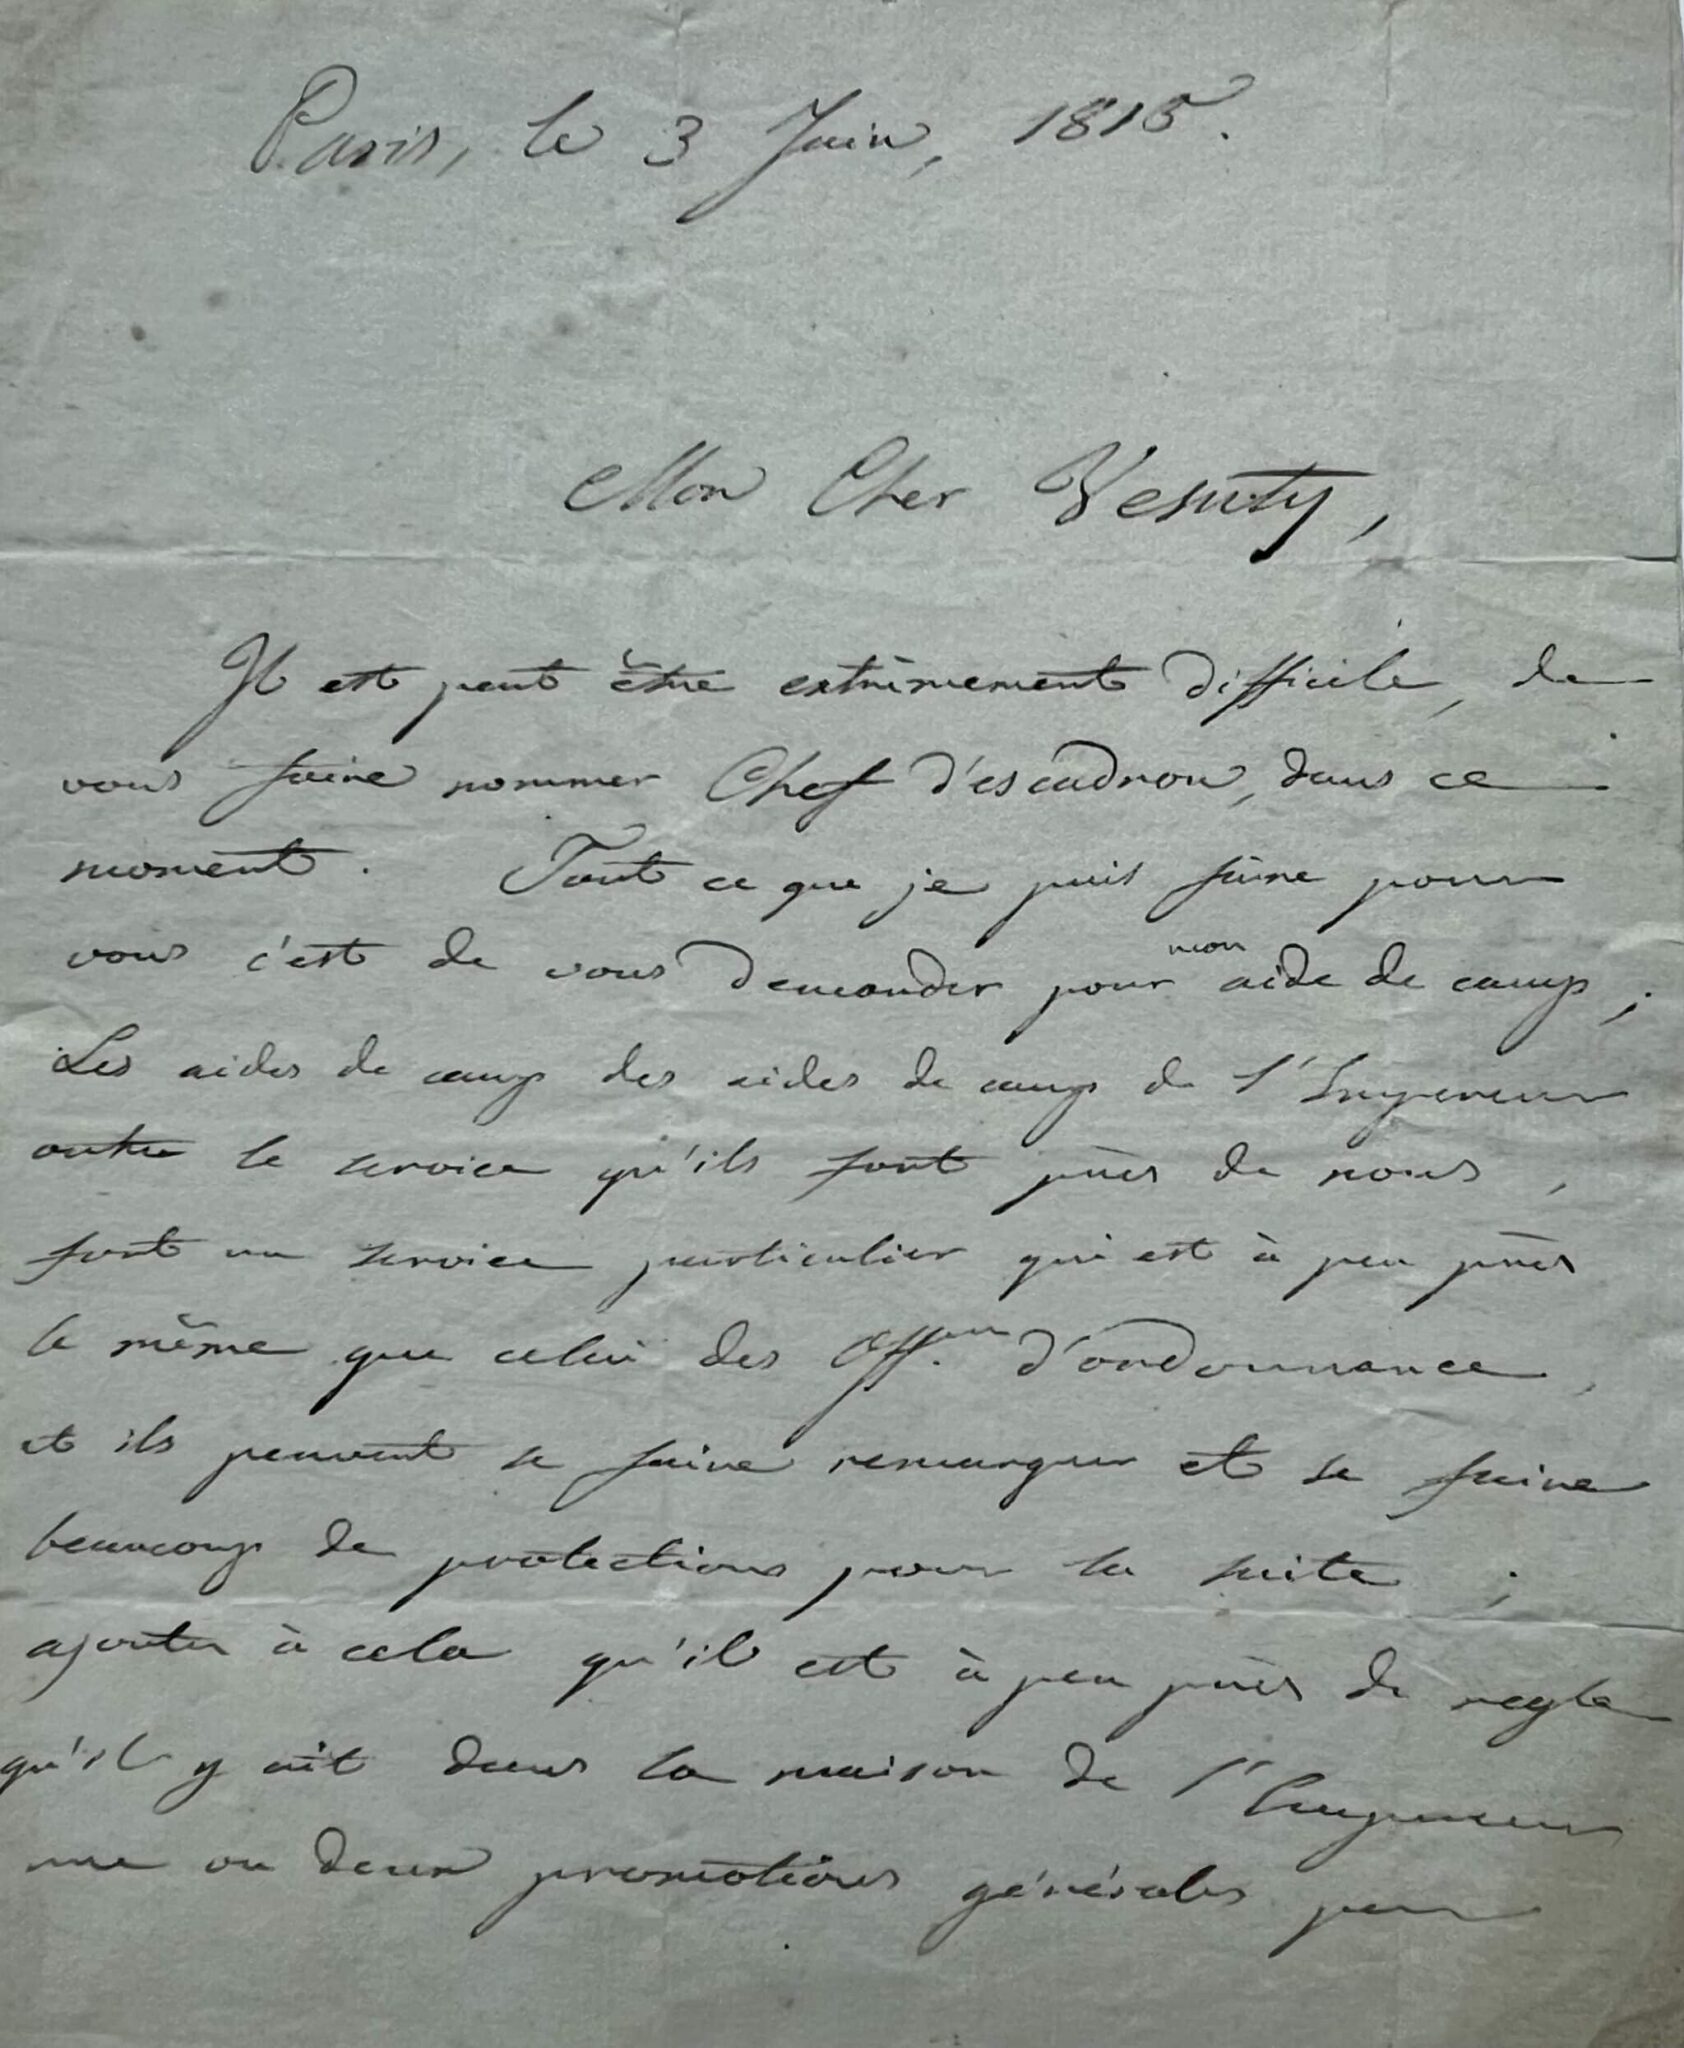 Paris, le 3 Juin, 1815.
Mon Cher
Il est peut être extrèmement difficile, de
vous faire nommer Chef d'escadron, dans ce
moment. Tout ce que je puis faire pour
vous c'est de vous demander pour mon aide de camp;
Les aides de camp des aides de camp de l'Empereur
outre le service qu'ils font près de nous,
font un service particulier qui est à peu près
le même que celui des Off.ers d'ordonnance,
et ils peuvent se faire remarquer et se faire
beaucoup de protections pour la suite;
ajouter à cela qu'il est à peu près de regle
qu'il y ait dans la maison de l'Empereur
une ou deux promotions générales par